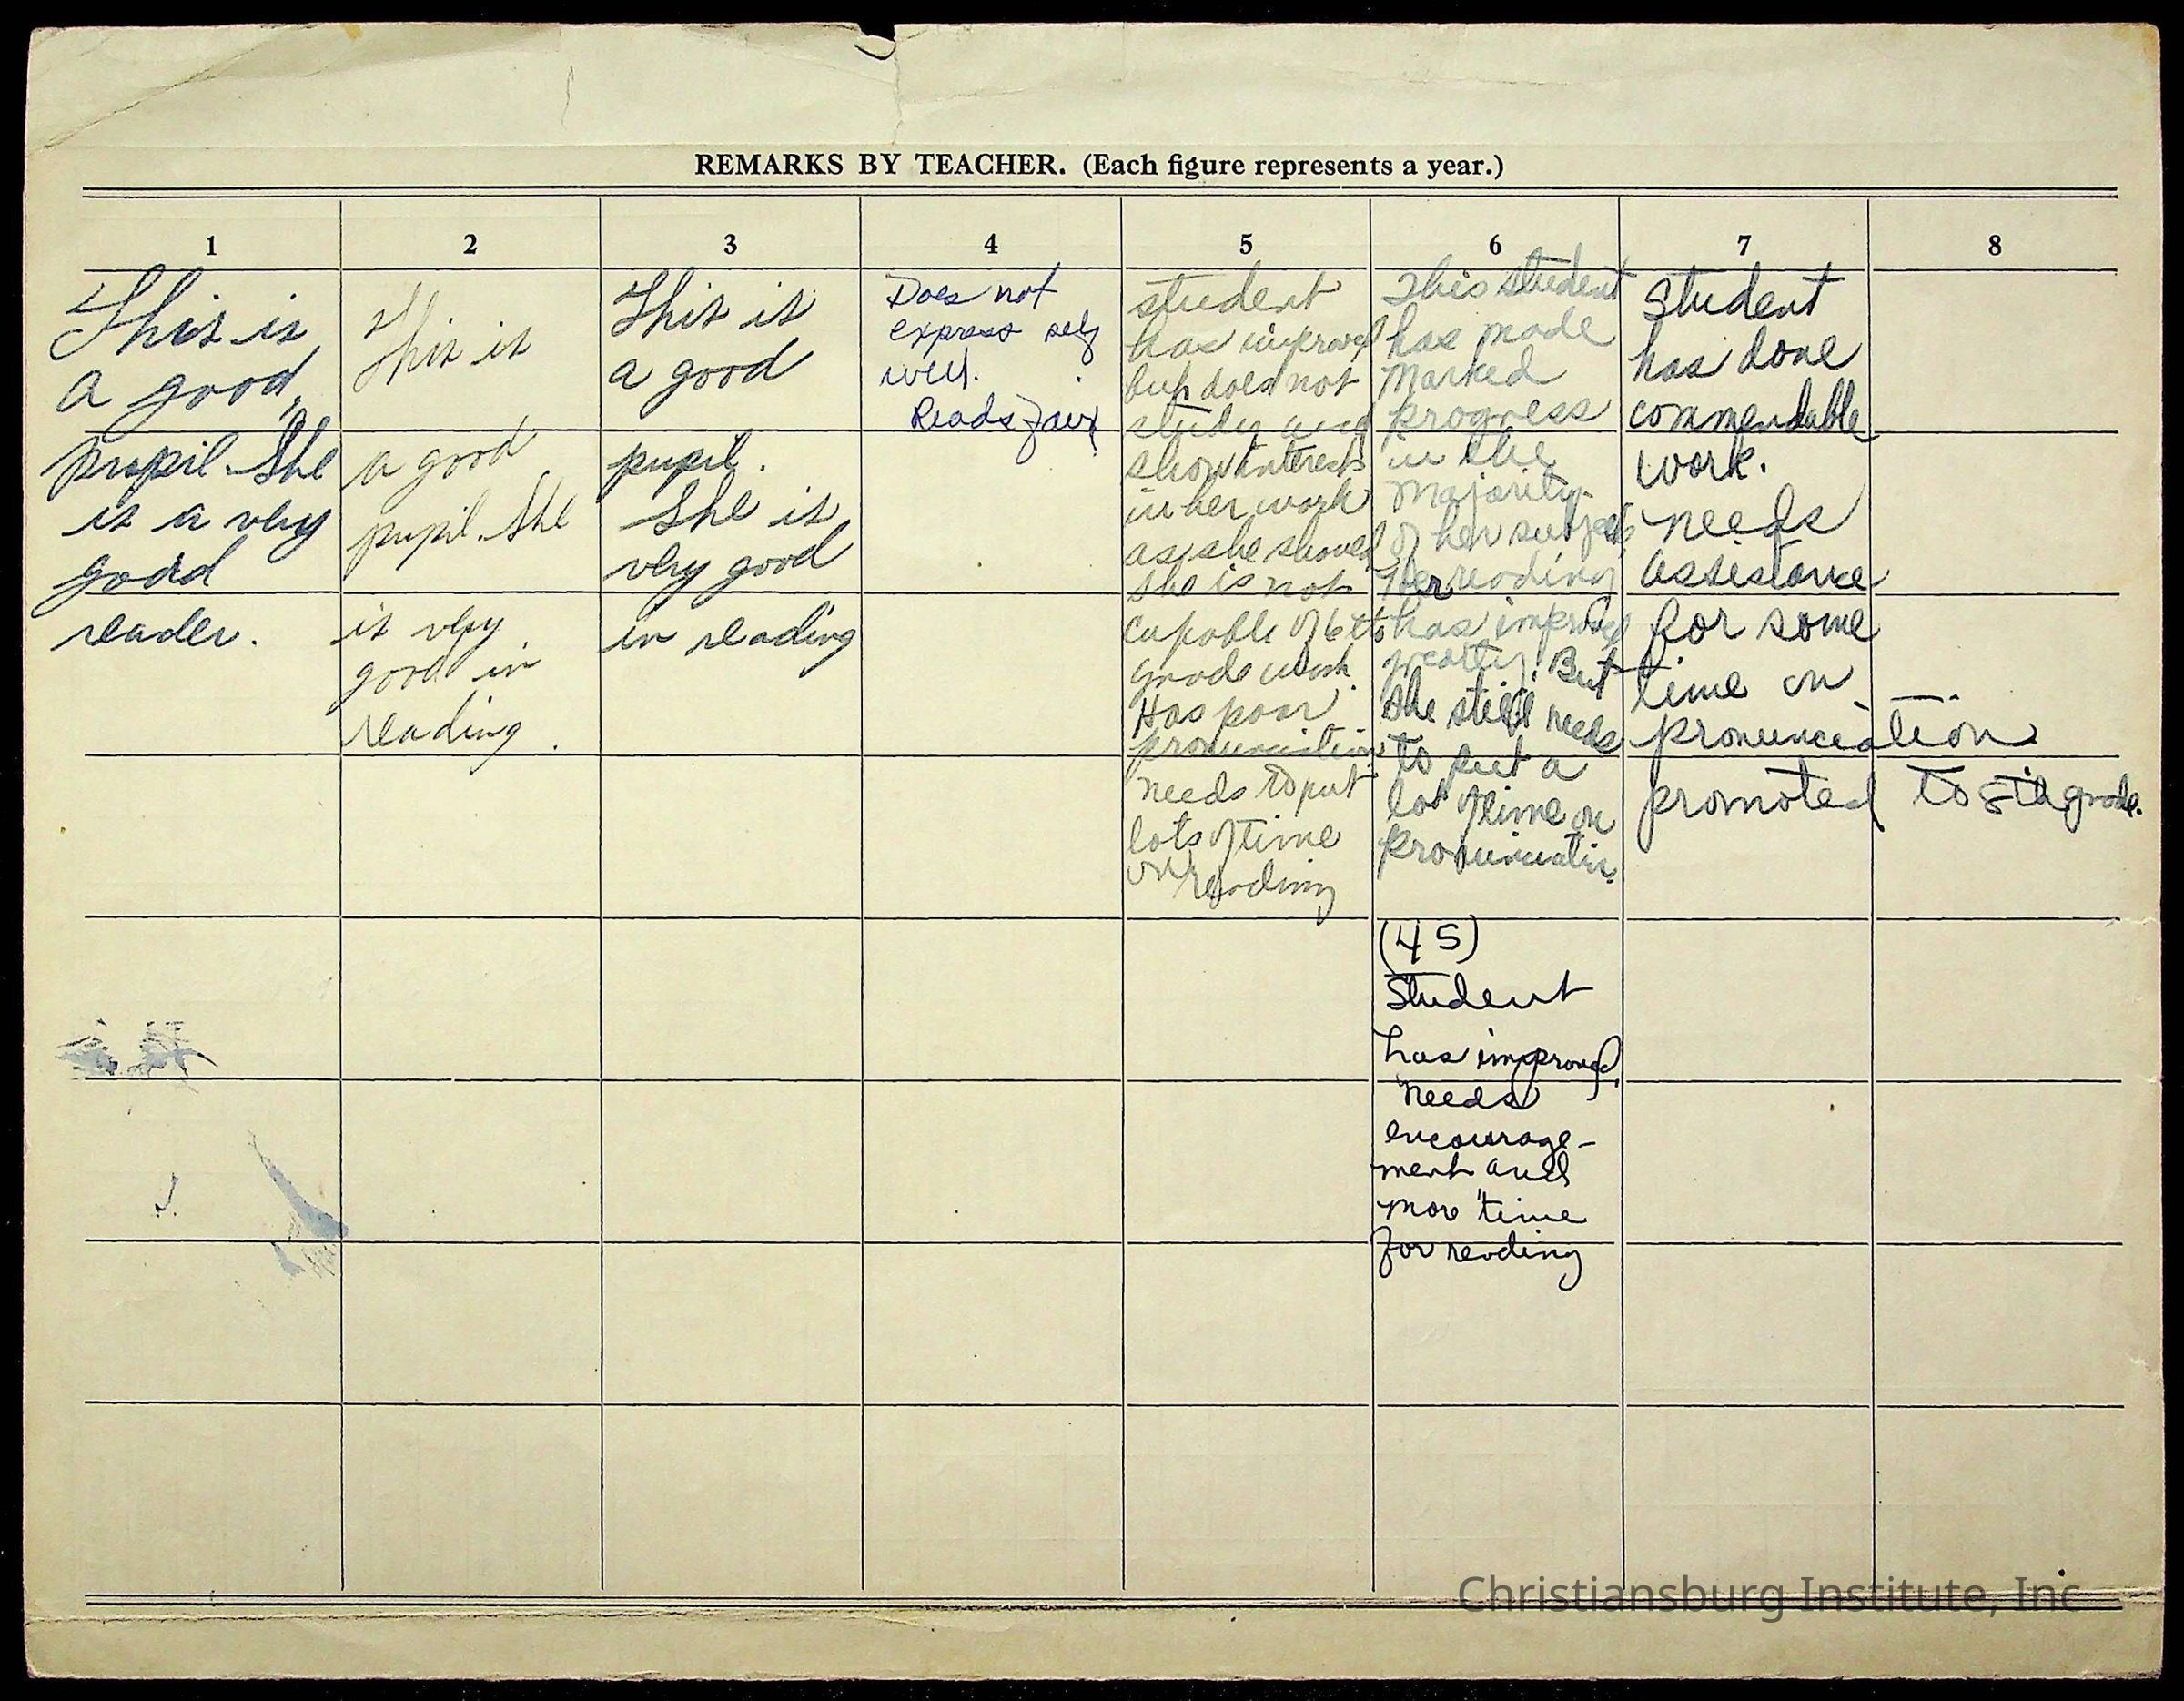 REMARKS BY TEACHER. (Each figure represents a year.)
1
This is
a good
pupil. She
is a very
good
reader.
2
This is
a good
pupil. She
is very
good in
reading.
3
This is
a good
pupil.
She is
very good
in reading
4
Does not
express self
well.
Reads fair
5
student
has improved
but does not
study and
show interest
in her work
as she should
she is not
capable of 6th
grade work.
Has poor
pronunciation
needs to put
lots of time
on reading
6
This student
has made
marked
progress
in the
majority
of her subjects
Her reading
has improved
greatly. But
she still needs
to put a
lot of time on
pronunciation.
(45)
Student
has improved.
Needs
encourage-
ment and
more time
for reading
7
Student
has done
commendable
work.
needs
assistance
for some
time on
pronunciation
promoted to 8th grade.
8
Christiansburg Institute, Inc